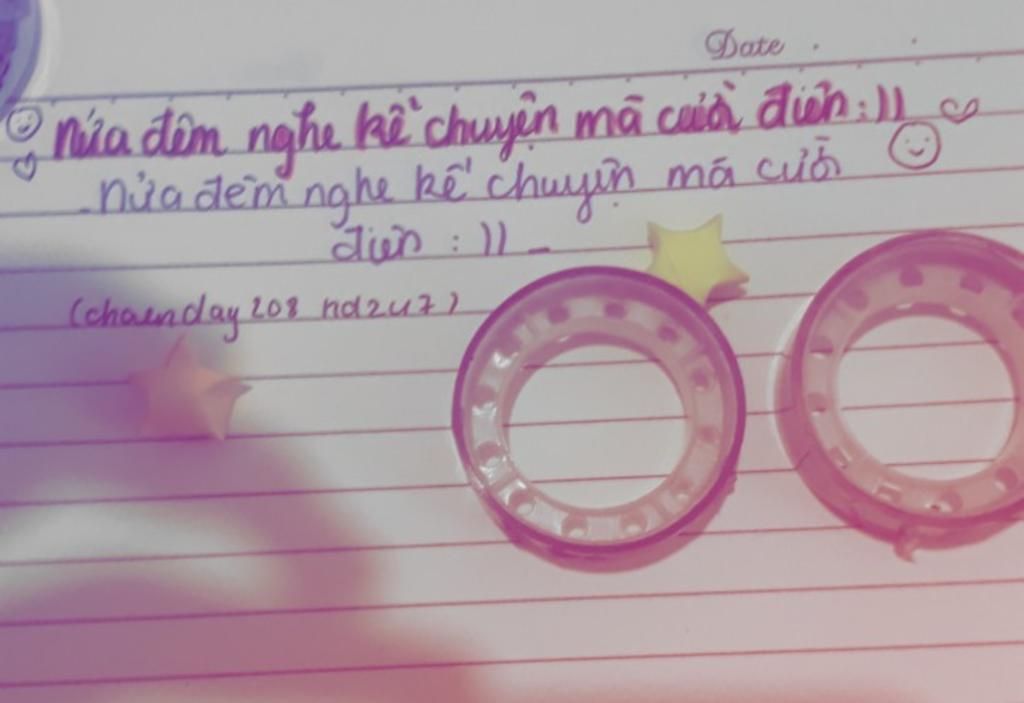 Date
Nửa đêm nghe kể chuyện mà cười điên :))
nửa đêm nghe kể chuyện mà cười
điên : ))
(chaenday208 nd2u7)